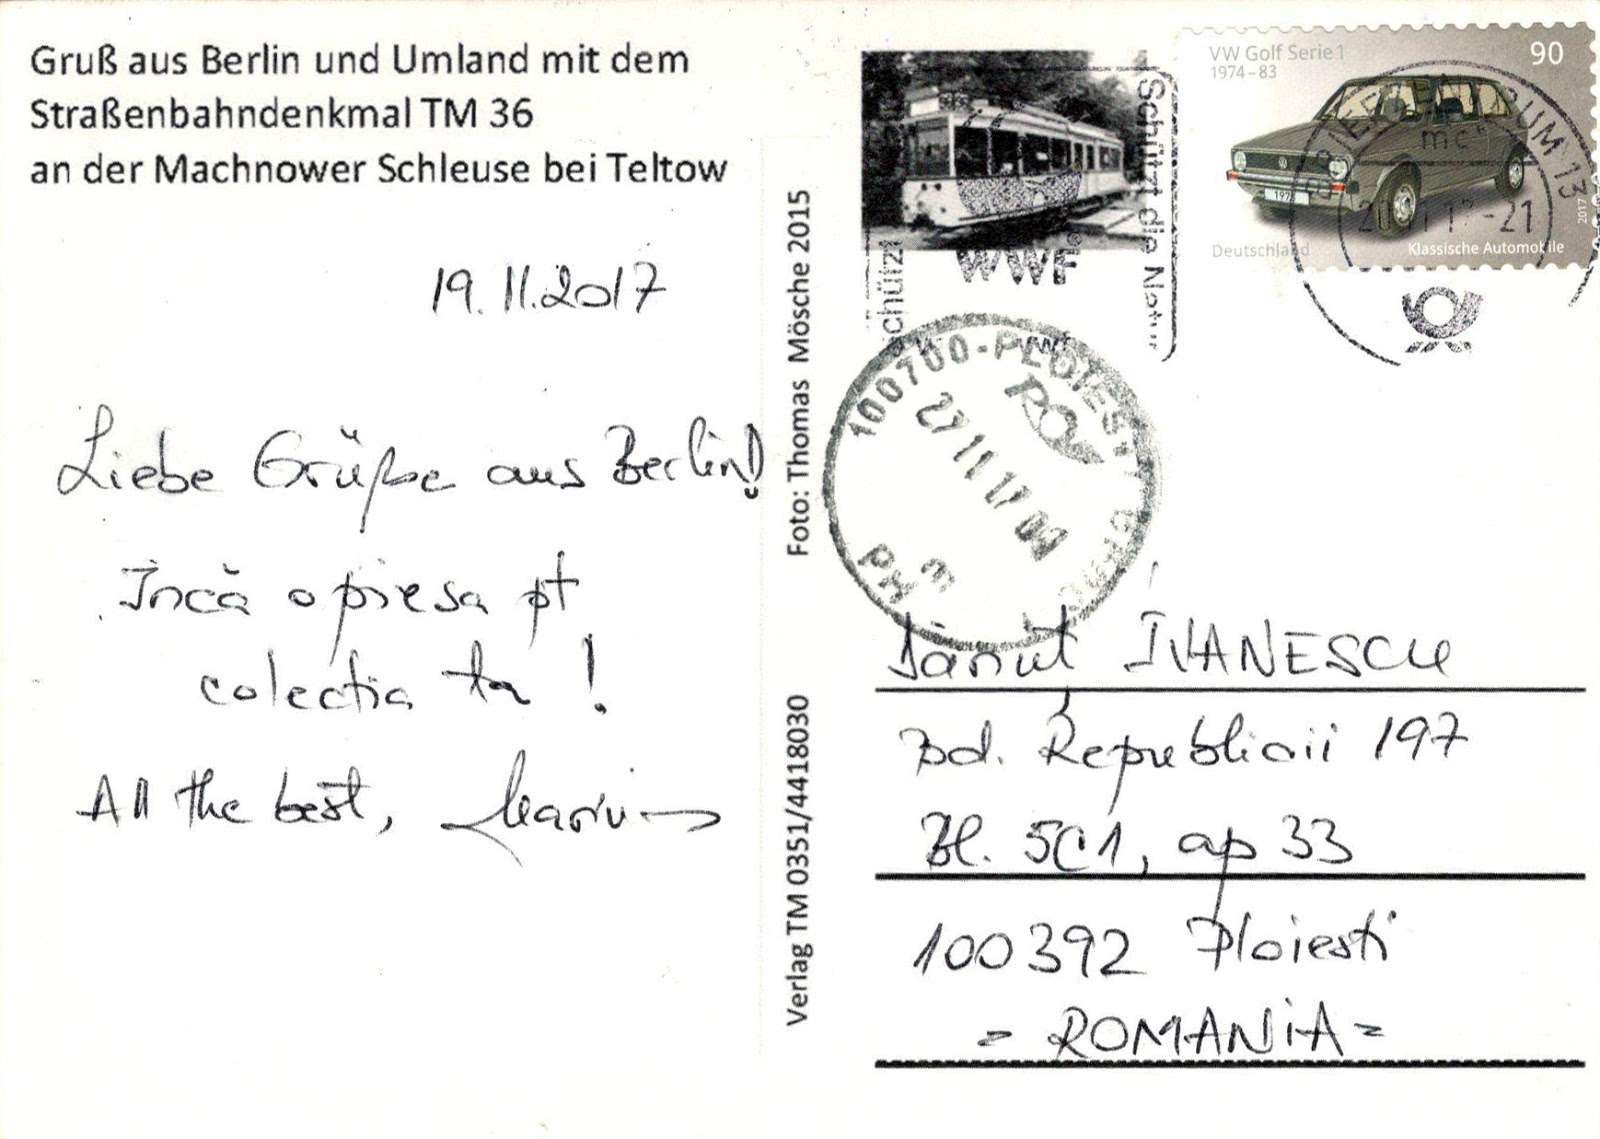 Gruß aus Berlin und Umland mit dem
Straßenbahndenkmal TM 36
an der Machnower Schleuse bei Teltow
19.11.2017
Liebe Grüße aus Berlin!
Încă o piesa pt
colectia ta !
All the best, Marius
Verlag TM 0351/4418030
Foto: Thomas Mösche 2015
Schützt die Natur
WWF®
chützt
VW Golf Serie 1
1974–83
90
Deutschland
Klassische Automobile
2017
BRIEFZENTRUM 13
-21
100700-PLOIESTI
27 11 17 09
PH
Dănuț IVANESCU
Bd. Republicii 197
Bl. 5C1, ap 33
100392 Ploiesti
= ROMANiA =